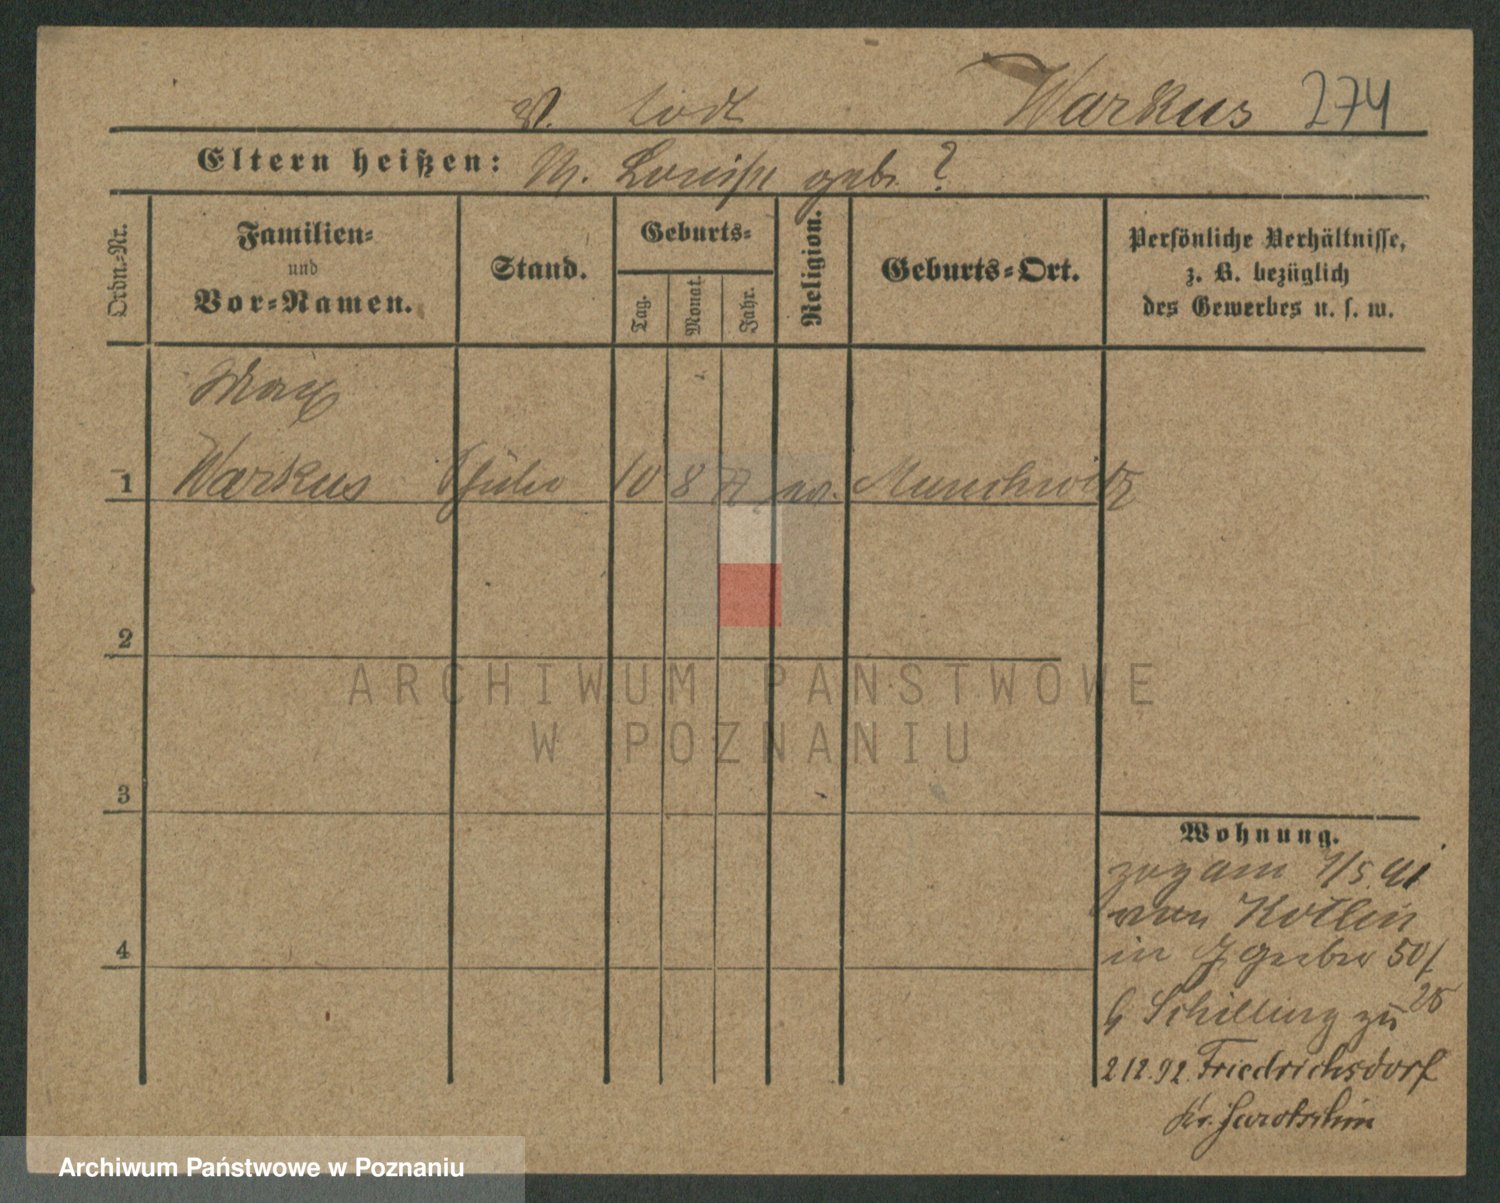 V. todt Warkus 274
Eltern heißen: M. Louise geb. ?
Ordn.-Nr.
Familien-
und
Vor-Namen.
Stand.
Geburts-
Tag.
Monat.
Jahr.
Religion.
Geburts-Ort.
Persönliche Verhältnisse,
z. B. bezüglich
des Gewerbes u. s. w.
Max
1 Warkus Schüler 10 8 77 ev.
2
3
4
Wohnung.
zuz am 1/5. 91
von Kotlin
in 50/
b Schilling zu 25
2 12. 92. Friedrichsdorf
Kr. Jarotschin
ARCHIWUM PAŃSTWOWE
W POZNANIU
Archiwum Państwowe w Poznaniu